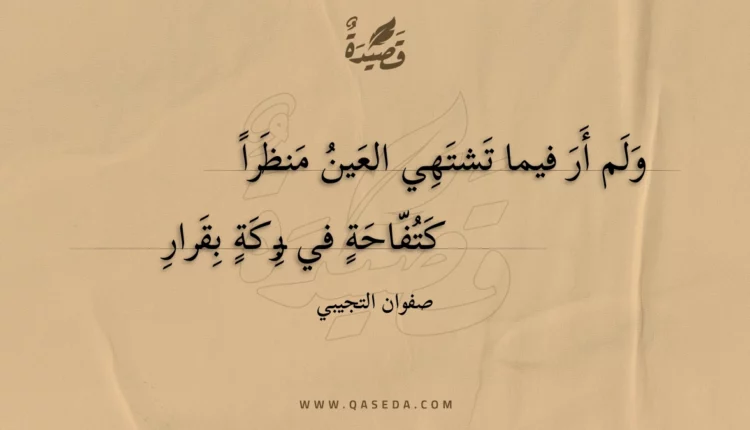 قَصِيدَةٌ
وَلَم أَرَ فيما تَشتَهِي العَينُ مَنظَراً
كَتُفّاحَةٍ في بِركَةٍ بِقَرارِ
صفوان التجيبي
WWW.QASEDA.COM